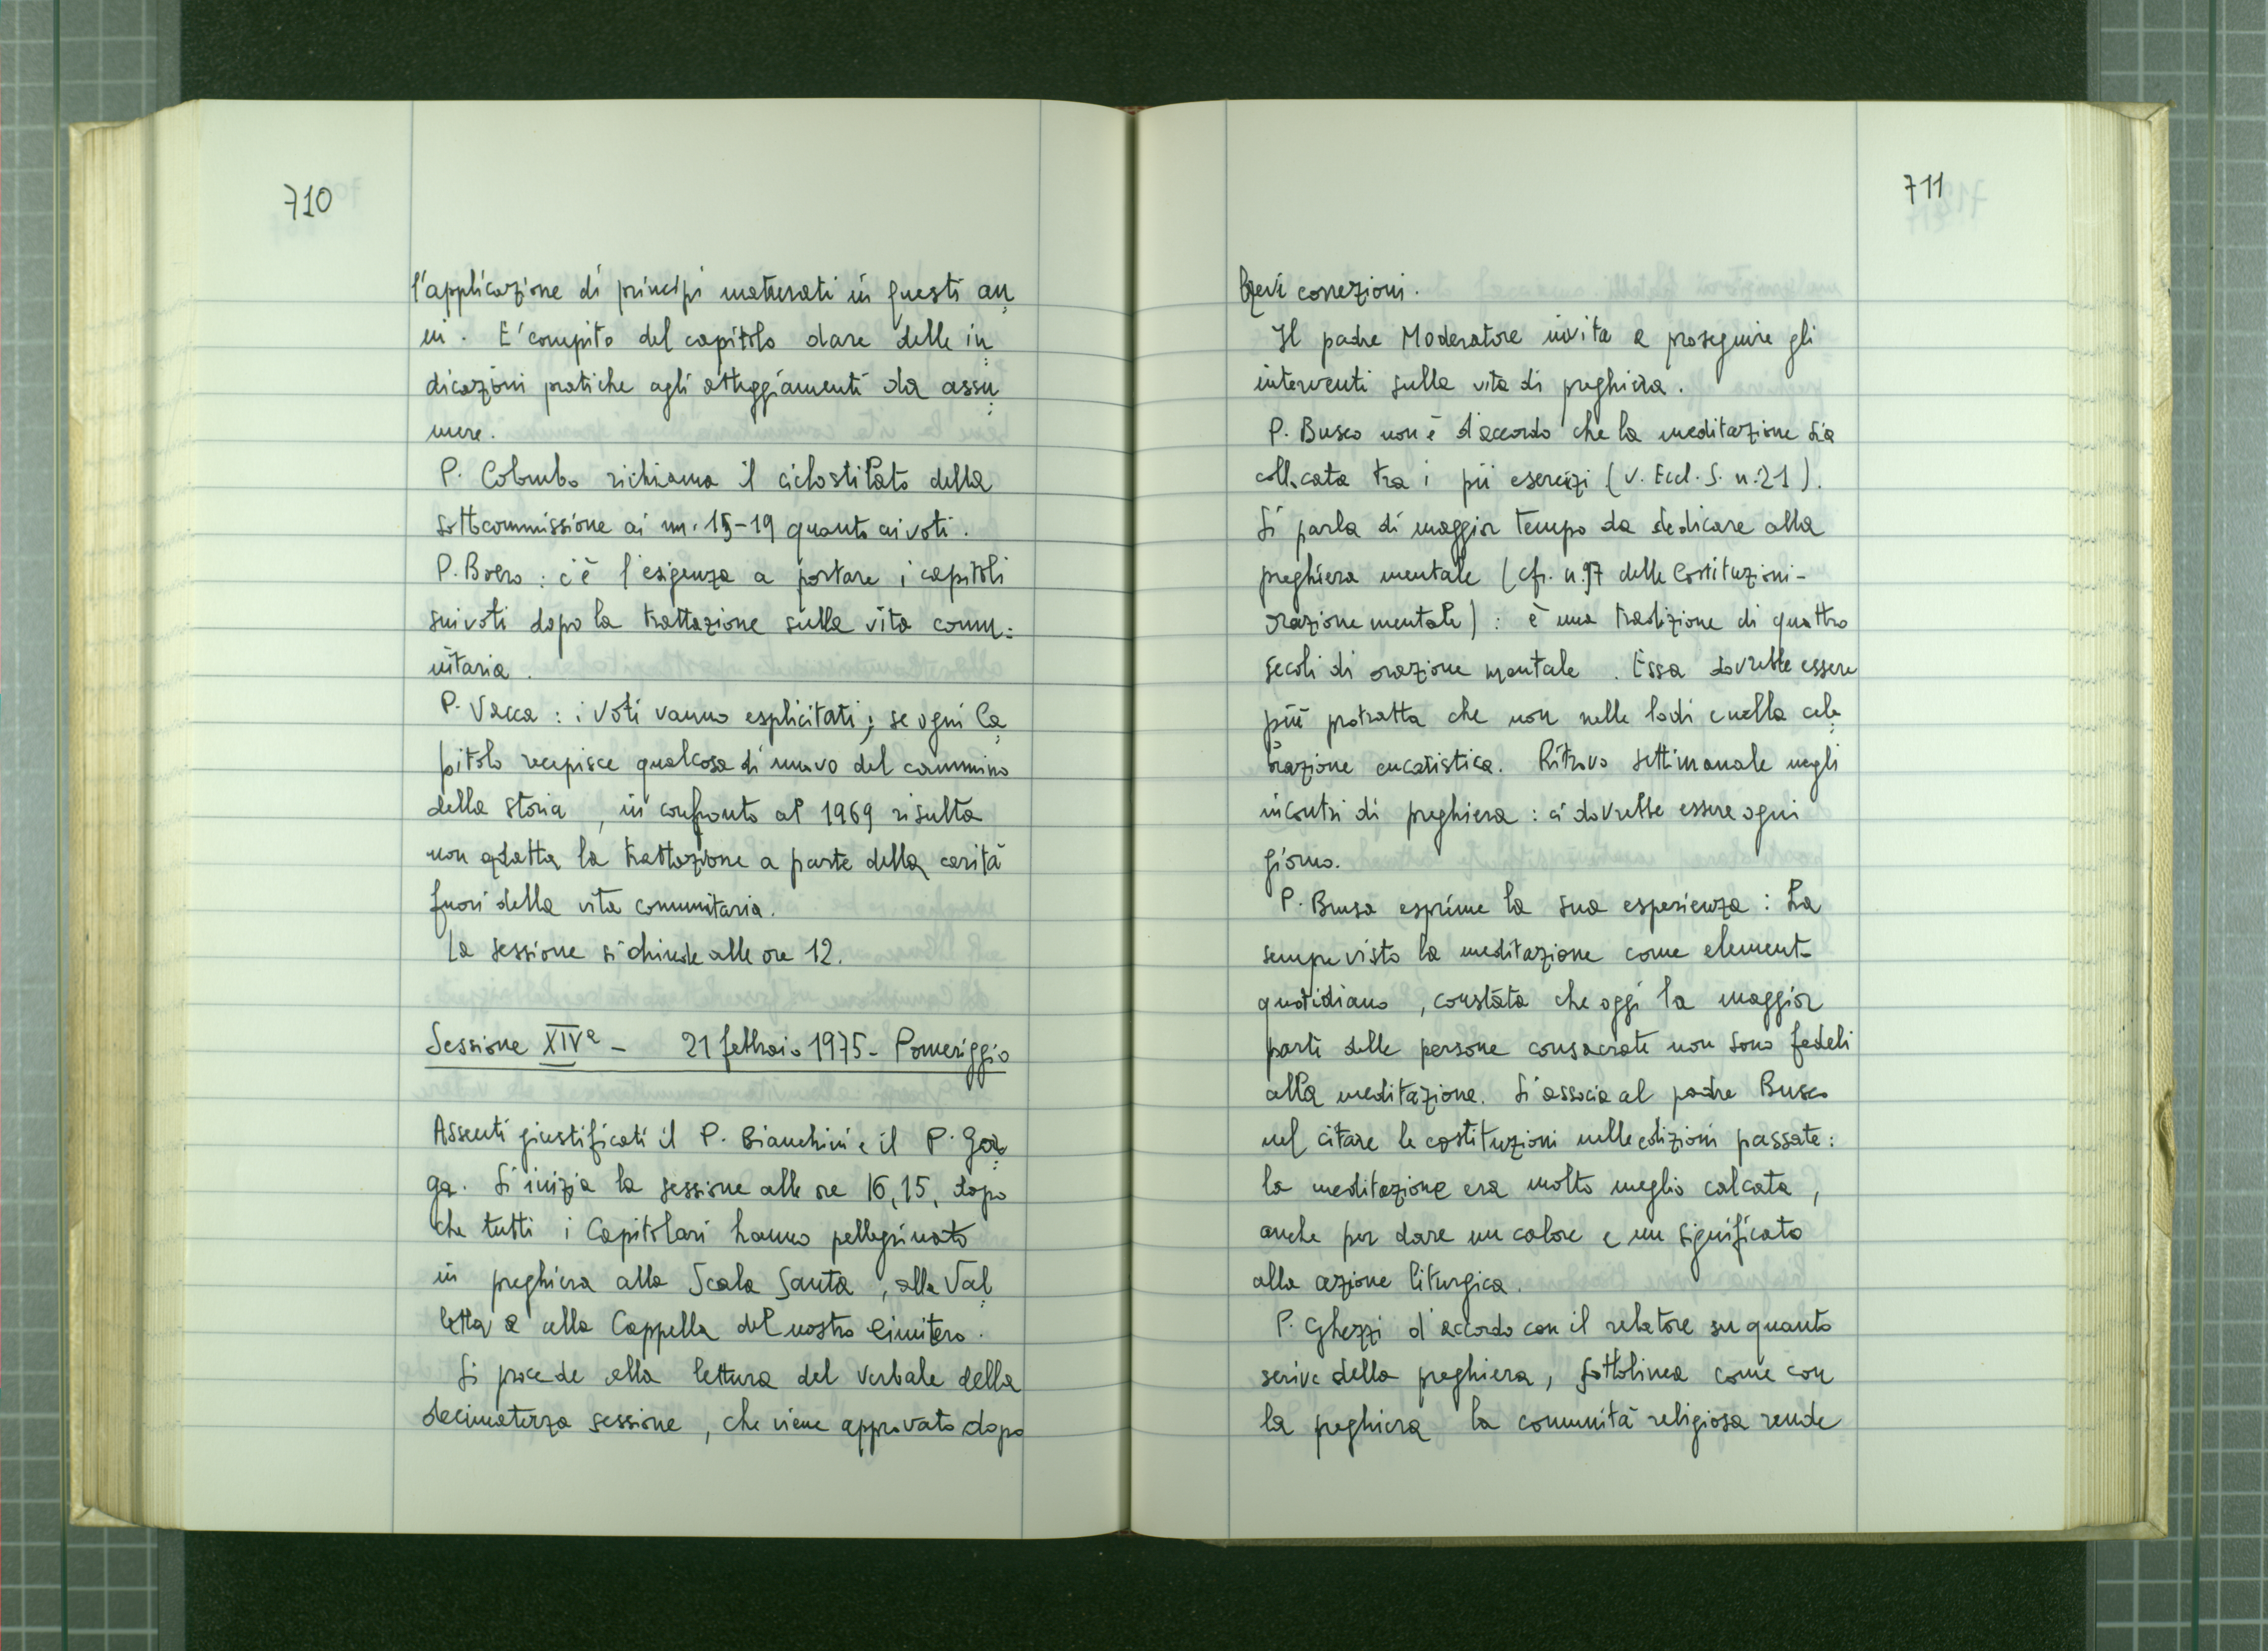 710
l'applicazione di principi maturati in questi an
ni. E' compito del capitolo dare delle in
dicazioni pratiche agli atteggiamenti da assu
mere.
P. Colombo richiama il ciclostilato della
sottocommissione ai nn. 15-19 quanto ai voti.
P. Boero: c'è l'esigenza a portare i capitoli
sui voti dopo la trattazione sulla vita comu=
nitaria.
P. Vacca: i voti vanno esplicitati; se ogni Ca
pitolo recepisce qualcosa di nuovo del cammino
della storia, in confronto al 1969 risulta
non adatta la trattazione a parte della carità
fuori della vita comunitaria.
La sessione si chiude alle ore 12.
Sessione XIVª - 21 febbraio 1975 - Pomeriggio
Assenti giustificati il P. Bianchini e il P. Gor
ga. Si inizia la sessione alle ore 16,15, dopo
che tutti i Capitolari hanno pellegrinato
in preghiera alla Scala Santa, alla Val
letta e alla Cappella del nostro Cimitero.
Si procede alla lettura del verbale della
decimaterza sessione, che viene approvato dopo
711
brevi correzioni.
Il padre Moderatore invita a proseguire gli
interventi sulla vita di preghiera.
P. Busco non è d'accordo che la meditazione sia
collocata tra i pii esercizi (v. Eccl. S. n. 21).
Si parla di maggior tempo da dedicare alla
preghiera mentale (cfr. n. 97 delle Costituzioni -
orazione mentale): è una tradizione di quattro
secoli di orazione mentale. Essa dovrebbe essere
più protratta che non nelle lodi e nella cele
brazione eucaristica. Ritrovo settimanale negli
incontri di preghiera: ci dovrebbe essere ogni
giorno.
P. Brusa esprime la sua esperienza: ha
sempre visto la meditazione come elemento
quotidiano, constata che oggi la maggior
parte delle persone consacrate non sono fedeli
alla meditazione. Si associa al padre Busco
nel citare le costituzioni nelle edizioni passate:
la meditazione era molto meglio calcata,
anche per dare un calore e un significato
alla azione liturgica.
P. Ghezzi d'accordo con il relatore su quanto
scrive della preghiera, sottolinea come con
la preghiera la comunità religiosa rende